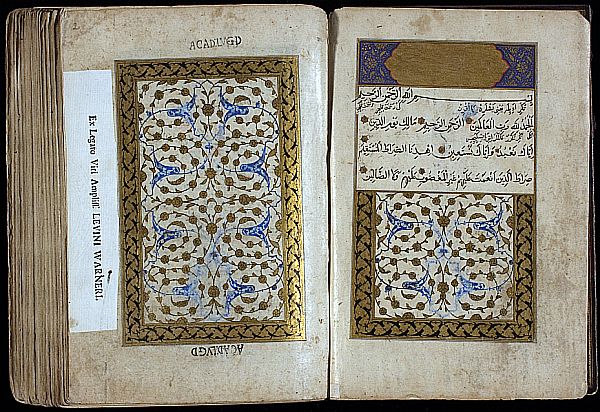 ACADLVGD
Ex Legato Viri Ampliſſ. LEVINI WARNERI.
ACADLVGD
بسم الله الرحمن الرحيم
الحمد لله رب العالمين الرحمن الرحيم مالك يوم الدين
اياك نعبد واياك نستعين اهدنا الصراط المستقيم
صراط الذين انعمت عليهم غير المغضوب عليهم ولا الضالين